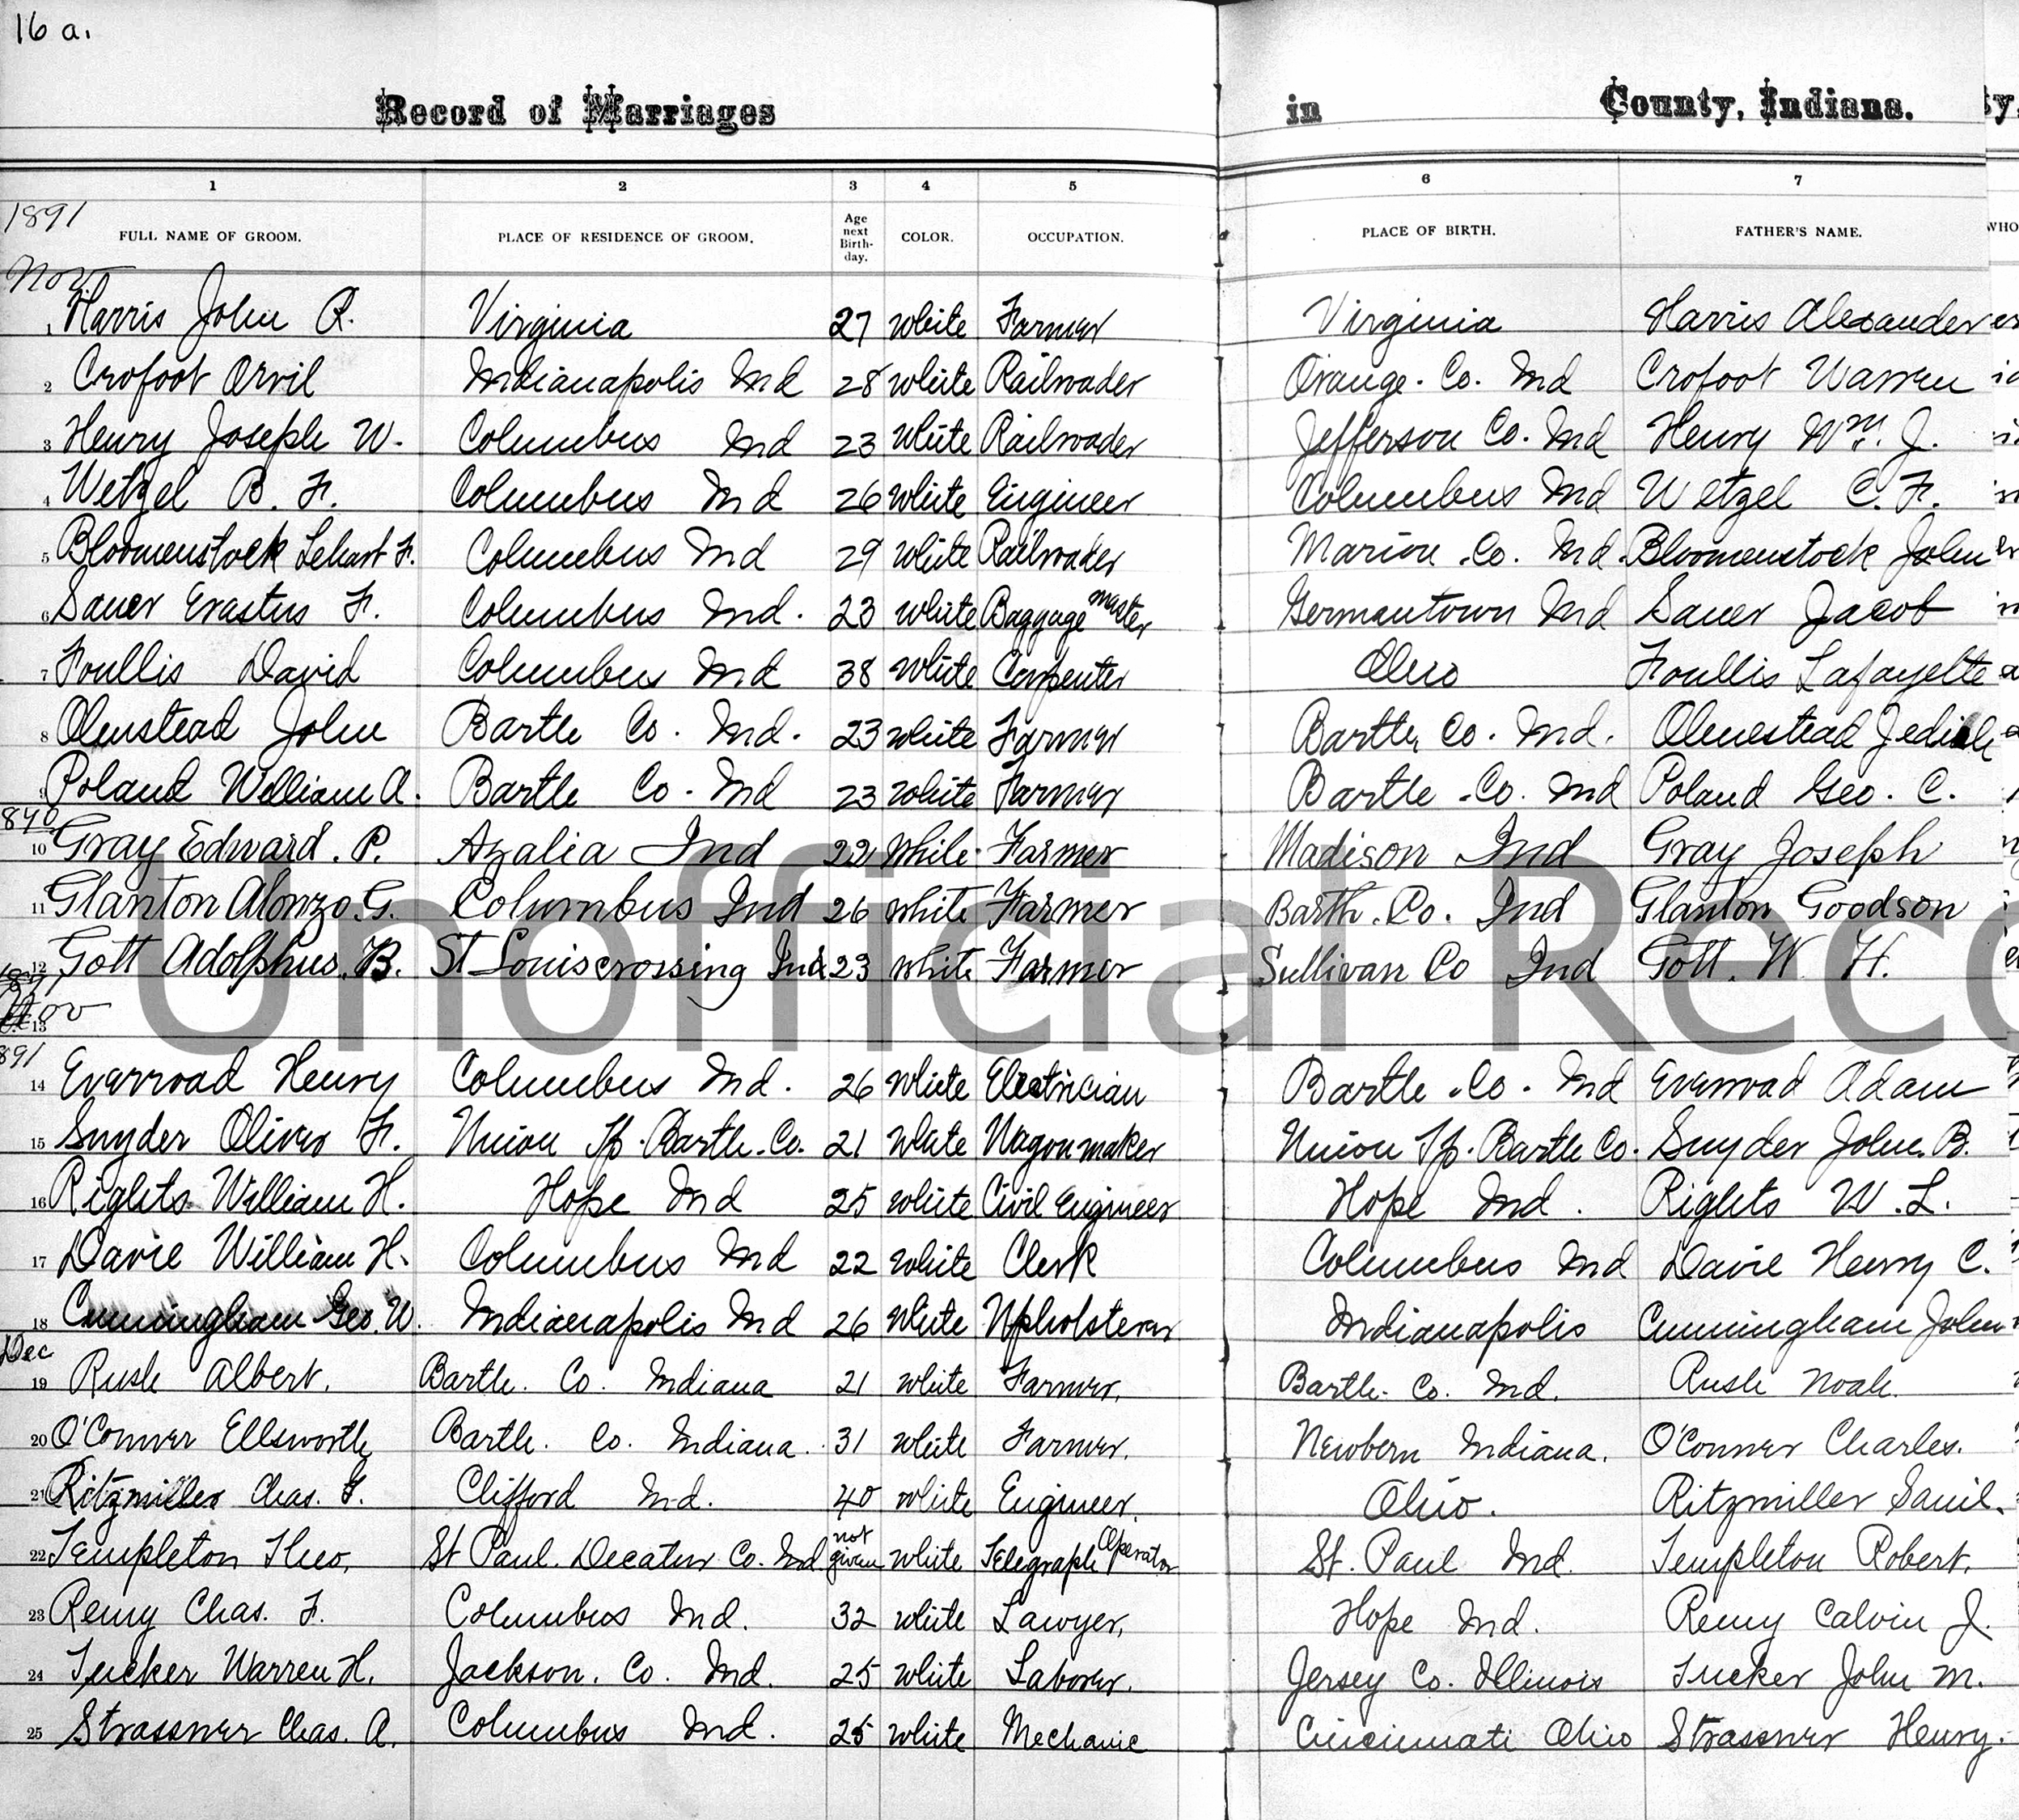 16 a.
Record of Marriages in County, Indiana. ty,
1 2 3 4 5 6 7
1891
FULL NAME OF GROOM. PLACE OF RESIDENCE OF GROOM. Age next Birth-day. COLOR. OCCUPATION. PLACE OF BIRTH. FATHER'S NAME. WHO
Nov
1 Harris John R. Virginia 27 White Farmer Virginia Harris Alexander
2 Crofoot Orvil Indianapolis Ind 28 White Railroader Orange. Co. Ind Crofoot Warren
3 Henry Joseph W. Columbus Ind 23 White Railroader Jefferson Co. Ind Henry Wm. J.
4 Wetzel B. F. Columbus Ind 26 White Engineer Columbus Ind Wetzel C. F.
5 Bloomenstock F. Columbus Ind 29 White Railroader Marion Co. Ind. Bloomenstock John
6 Sauer Erastus F. Columbus Ind. 23 White Baggage master Germantown Ind Sauer Jacob
7 Foullis David Columbus Ind 38 White Carpenter Ohio Foullis Lafayette
8 Olmstead John Barth Co. Ind. 23 White Farmer Barth. Co. Ind. Olmestead
9 Poland William A. Barth Co. Ind 23 White Farmer Barth. Co. Ind Poland Geo. C.
890
10 Gray Edward. P. Azalia Ind 22 White. Farmer Madison Ind Gray Joseph
11 Glanton Alonzo. G. Columbus Ind 26 White Farmer Barth. Co. Ind Glanton Goodson
12 Gott Adolphus. B. St Louiscrossing Ind. 23 White Farmer Sullivan Co Ind Gott. W. H.
1891
Nov
13
891
14 Everroad Henry Columbus Ind. 26 White Electrician Barth. Co. Ind Everroad Adam
15 Snyder Oliver F. Union Tp. Barth. Co. 21 White Wagonmaker Union Tp. Barth Co. Snyder John. B.
16 Rights William H. Hope Ind 25 White Civil Engineer Hope Ind. Rights W. L.
17 Davie William H. Columbus Ind 22 White Clerk Columbus Ind Davie Henry C.
18 Cunningham Geo. W. Indianapolis Ind 26 White Upholsterer Indianapolis Cunningham John
Dec
19 Rush Albert. Barth. Co. Indiana 21 White Farmer. Barth. Co. Ind. Rush Noah.
20 O'Conner Ellsworth Barth. Co. Indiana. 31 White Farmer. Newbern Indiana. O'Conner Charles.
21 Ritzmiller Chas. F. Clifford Ind. 40 White Engineer. Ohio. Ritzmiller
22 Templeton Theo. St Paul. Decatur Co. Ind. not given White Telegraph Operator St. Paul Ind. Templeton Robert.
23 Remy Chas. F. Columbus Ind. 32 White Lawyer. Hope Ind. Remy Calvin J.
24 Tucker Warren H. Jackson. Co. Ind. 25 White Laborer. Jersey Co. Illinois Tucker John M.
25 Strassner Chas. A. Columbus Ind. 25 White Mechanic Cincinnati Ohio Strassner Henry.
Unofficial Reco